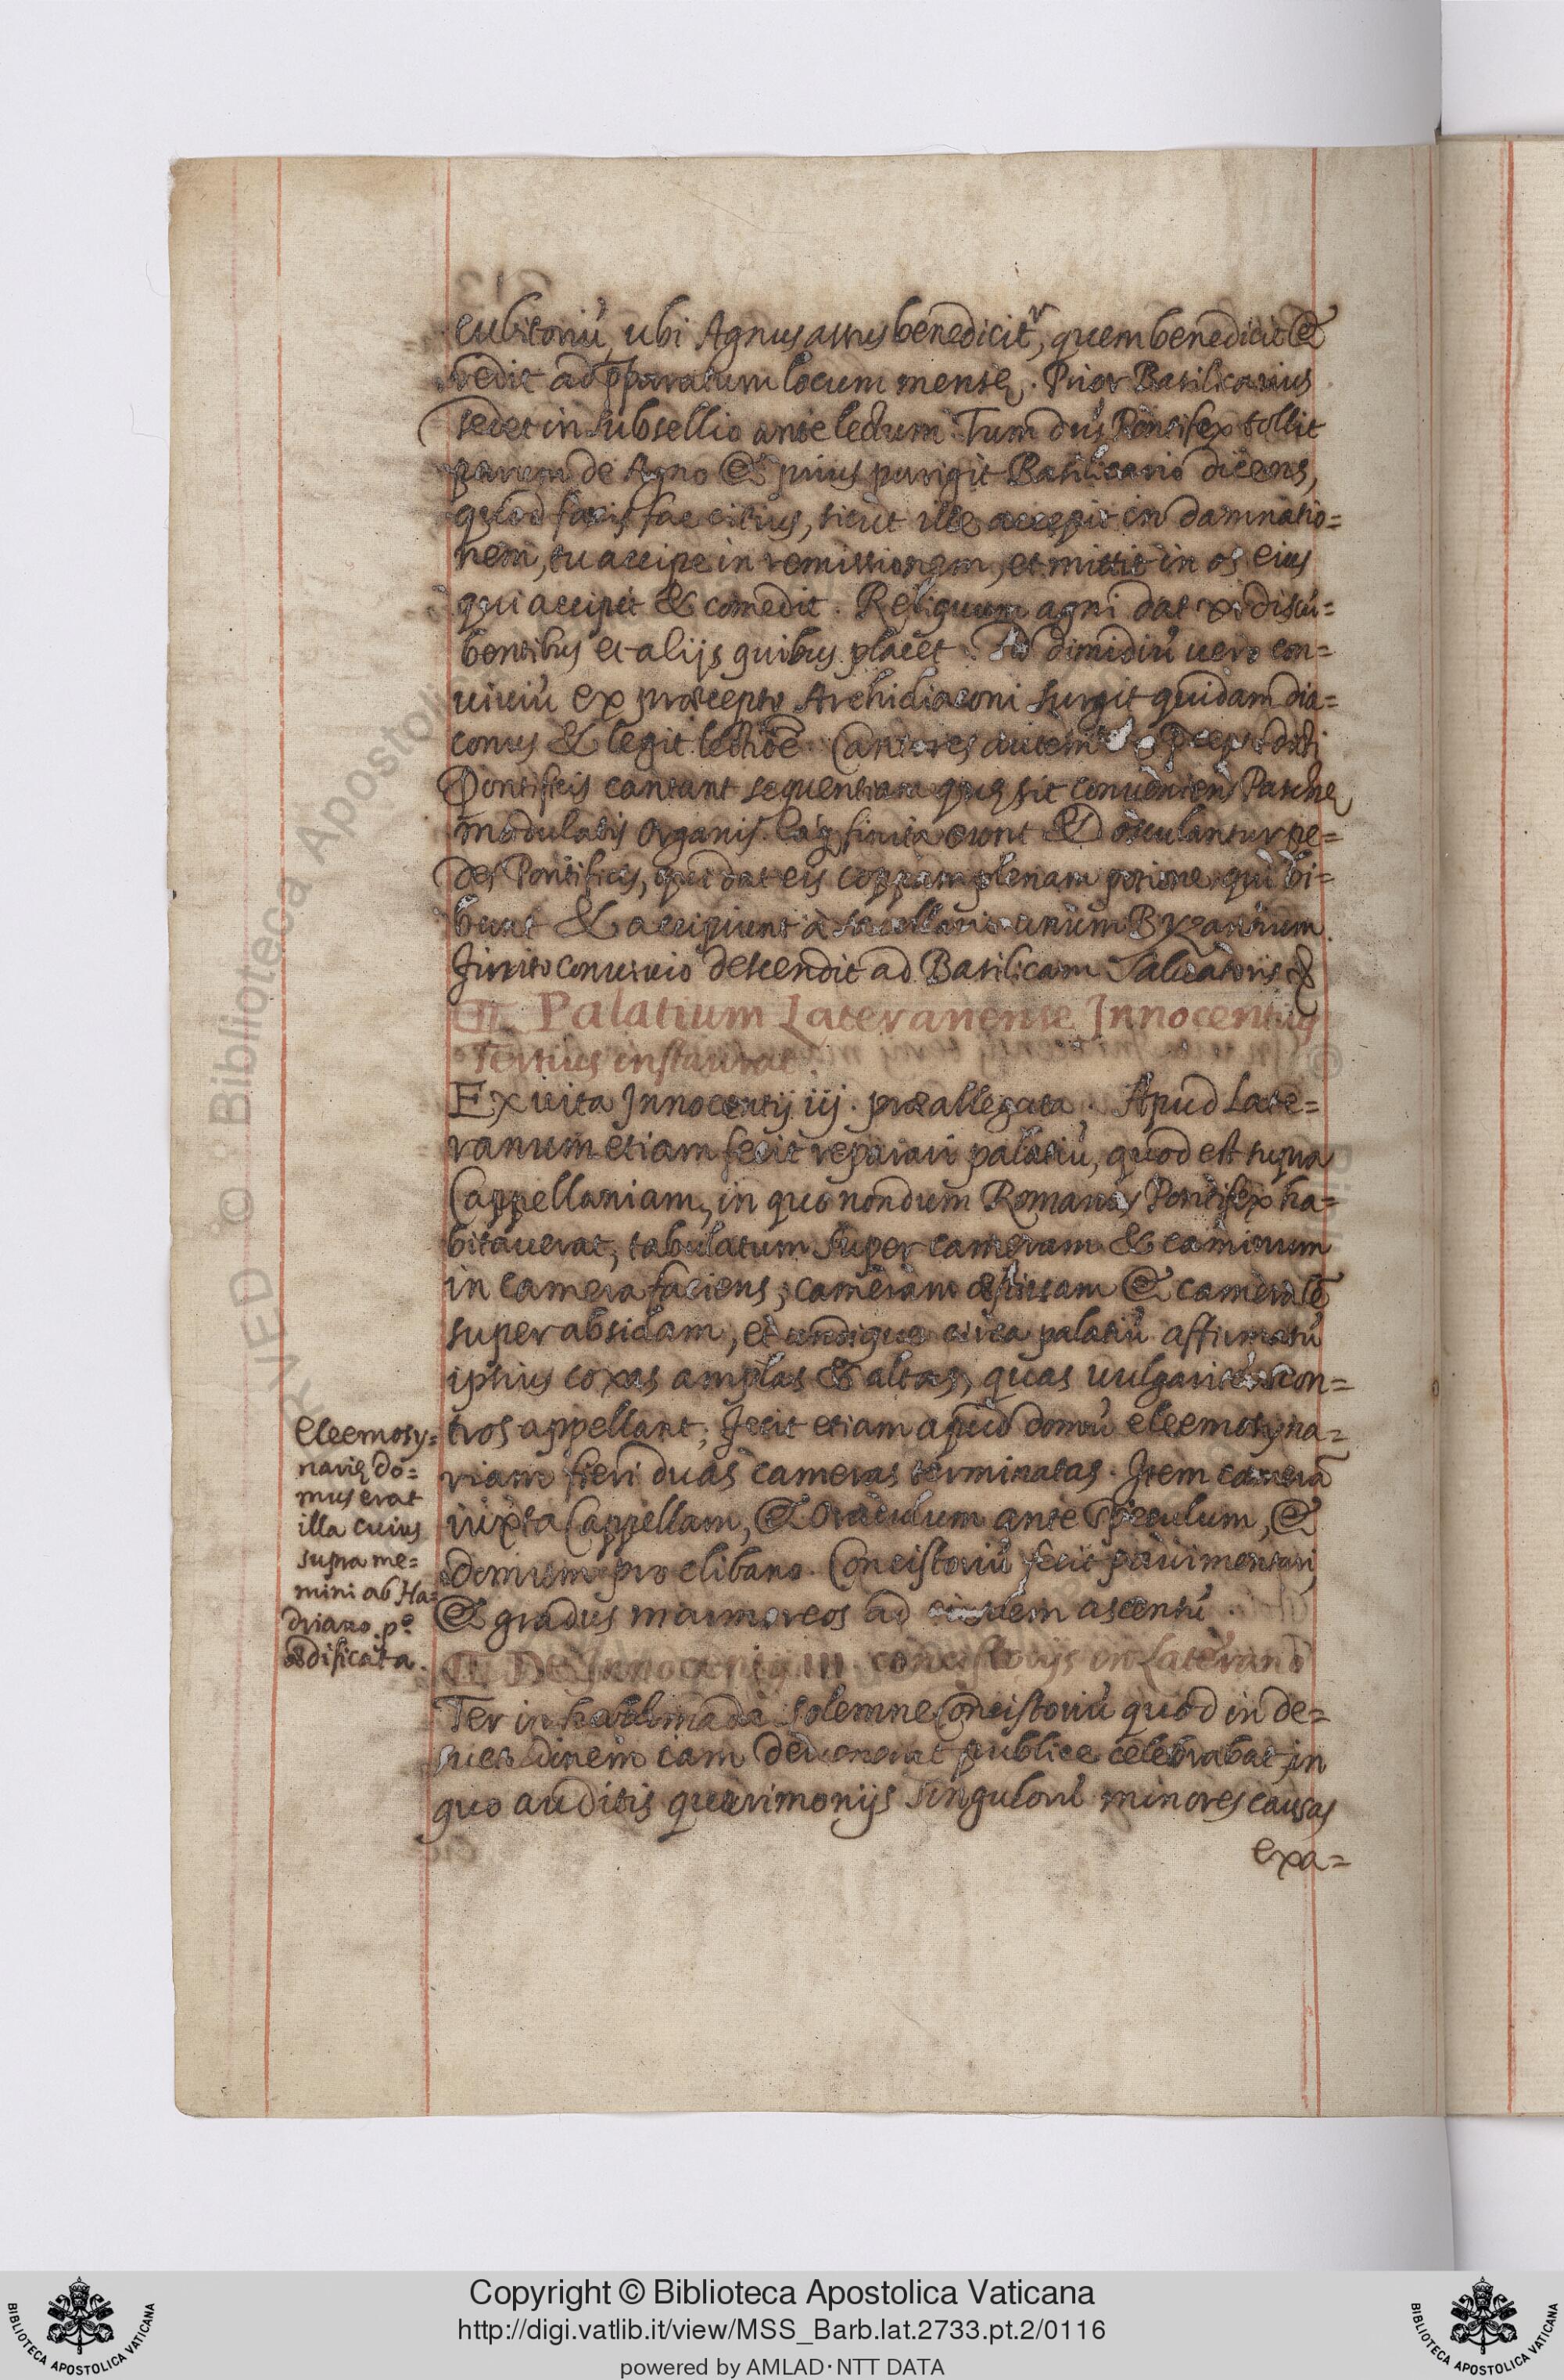 cubitoriũ, ubi Agnus assus benedicitr, quem benedicit &
redit ad ꝑparatum locum mensę. Prior Basilicarius
sedet in subsellio ante lectum. Tum dñs Pontifex tollit
parum de Agno & prius porrigit Basilicario dicens,
quod facis fac citius, sicut ille accepit in damnatio=
nem, tu accipe in remissionem, et mittit in os eius
qui accipit & comedit. Reliquum agni dat xi discu=
bentibus et alijs quibus placet. Ad dimidiũ uero con=
uiuiũ ex præcepto Archidiaconi surgit quidam dia=
conus & legit lectiõẽ. Cantores autem dicti
Pontificis cantant sequentiam quę sit conueniens Paschę
modulatis organis. finita erunt & osculantur pe=
des Pontificis, qui dat eis coppam plenam potione, qui bi=
bunt & accipiunt à sacellario unum Byzantium.
Finito conuiuio descendit ad Basilicam Saluatoris &
Palatium Lateranense Innocentius
Tertius instaurat.
Ex uita Innocentij iij. præallegata. Apud Late=
ranum etiam fecit reparari palatiũ, quod est supra
Cappellaniam, in quo nondum Romanus Pontifex ha=
bitauerat, tabulatum super cameram & caminum
in camera faciens, cameram & camera
super absidam, et undique circa palatiũ affirmatũ
ipsius coxas amplas & altas, quas uulgariter con=
tros appellant; Fecit etiam apud domũ eleemosyna=
riam fieri duas cameras terminatas. Item camerã
iuxta Cappellam, & Oraculum ante Speculum, &
domum pro clibano. Concistoriũ fecit pauimentari,
& gradus marmoreos ad eiusdem ascensũ.
De Innocentio III concistorijs in Laterano
Ter in habdmada solemne Concistoriũ quod in de=
suetudinem iam deuenerat publice celebrabat, in
quo auditis querimonijs singulorũ minores causas
exa=
Eleemosy=
narię do=
mus erat
illa cuius
supra me=
mini ab Ha=
driano. pº
ædificata.
Copyright © Biblioteca Apostolica Vaticana
http://digi.vatlib.it/view/MSS_Barb.lat.2733.pt.2/0116
powered by AMLAD·NTT DATA
BIBLIOTECA APOSTOLICA VATICANA
BIBLIOTECA APOSTOLICA VATICANA